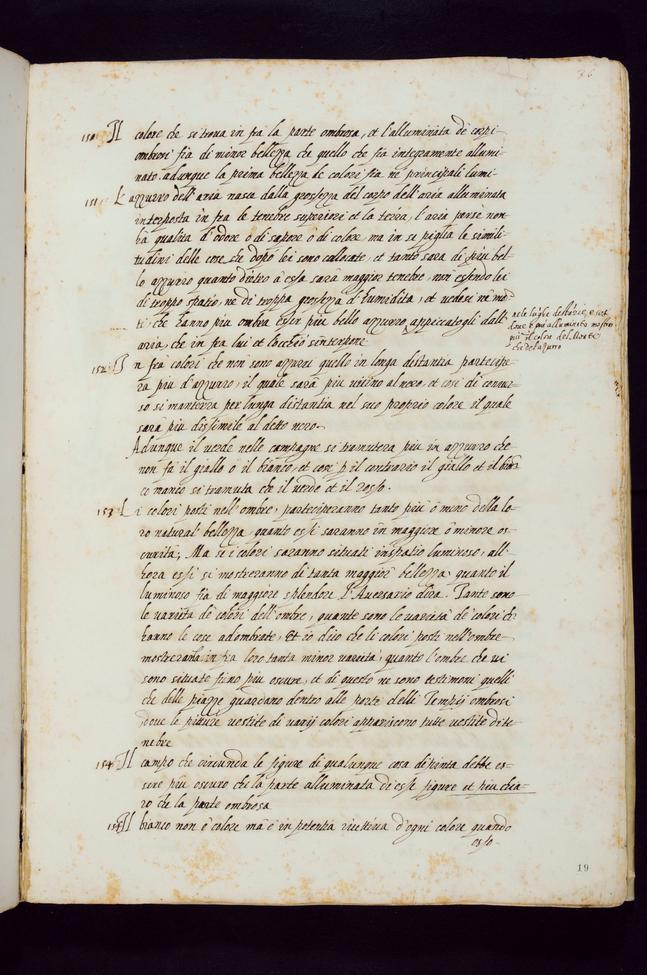 36
150 Il colore che si troua in fra la parte ombrosa, et l'alluminata de corpi
ombrosi fia di minor bellezza che quello che fia integramente allumi-
nato. adunque la prima bellezza de colori fia ne principali lumi
151 L'azzurro dell'aria nasce dalla grossezza del corpo dell'aria alluminata
interposta in fra le tenebre superiori et la terra, l'aria perse non
ha qualità d'odore ò di sapore ò di colore, ma in se piglia le simili-
tudini delle cose che dopò lei sono collocate, et tanto sarà di piu bel-
lo azzurro quanto dietro à essa sarà maggior tenebre, non essendo lei
di troppo spatio, ne di troppa grossezza d'humidità, et uedesi ne mo-
ti, che hanno piu ombra esser piu bello azzurro appiccatogli dall'
aria, che in fra lui et l'occhio s'interpone
ne le lunghe distantie, et
doue è piu alluminato mostra
piu il color del Monte
che de l'azzurro
152 In fra colori che non sono azzurri quello in longa distantia partecipe-
rà piu d'azzurro, il quale sarà piu uicino al nero, et cosi di conuer-
so si manterrà per lunga distantia nel suo proprio colore il quale
sara piu dissimile al detto nero.
Adunque il uerde nelle campagne si tramuterà piu in azzurro che
non fa il giallo ò il bianco, et cosi p il contrario il giallo et il bian
co manco si tramuta che il uerde et il rosso.
153 Li colori posti nell'ombre, parteciperanno tanto più ò meno della lo-
ro natural' bellezza, quanto essi saranno in maggiore ò minore os-
curità; Ma se i colori saranno situati in spatio luminoso, all'-
hora essi si mostreranno di tanta maggior bellezza, quanto il
luminoso fia di maggiore splendore L'Auersario dira. Tante sono
le uarietà de colori dell'ombre, quante sono le uarietà de' colori ch
hanno le cose adombrate, Et io dico che li colori posti nell'ombre
mostreranno in fra loro tanta minor uarietà, quanto l'ombre che ui
sono situate fino piu oscure, et di questo ne sono testimoni quelli
che delle piazze guardano dentro alle porte delli Tempij ombrosi
doue le pitture uestite di uarij colori appariscono tutte uestite di te
nebre
154 Il campo che circunda le figure di qualunque cosa dipinta debbe es-
sere più oscuro che la parte alluminata di esse figure et piu chia-
ro che la parte ombrosa
155 Il bianco non è colore ma è in potentia ricettiua d'ogni colore quando
esso-
19